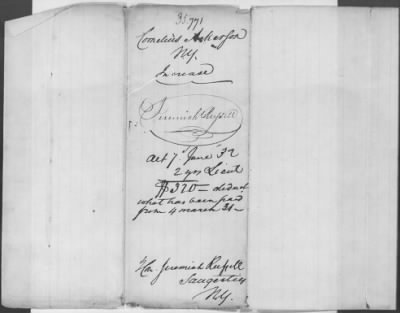 35.771
Cornelius Ackerson
NY.
Increase
Jeremiah Russell
Act 7 June 32
2 yrs Lieut
$320 — deduct
what has been paid
from 4 march 31 —
Hon Jeremiah Russell
Saugerties
NY.